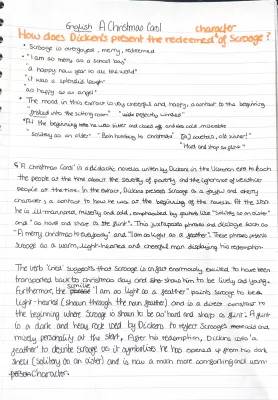 English A Christmas Carol
character
How does Dickens present the redeemed of Scrooge?
Scrooge is overjoyed, merry, redeemed
"I am so merry as a school boy"
"a happy new year to all the world"
"it was a splendid laugh"
as happy as an angel"
The mood in this extract is very cheerful and happy, contrast to the beginning
"frisked into the sitting room" "perfectly winded"
At the beginning he was bitter and closed off and and cold, miserable
solitary as an oyster" "Bah humbug to christmas"
"Hard and sharp as flint"
'A Christmas Carol' is a didactic novella written by Dickens in the Victorian era to teach
the people at the time about the severity of poverty and the ignorance of wealthier
people at the time. In the extract, Dickens presents Scrooge as a joyful and cheery
character; a contrast to how he was at the beginning of the novella.
he is ill-mannered, miserly and odd, emphasised by quotes like "Solitary as an oister"
and "as hard and sharp as flint". This juxtaposes phrases and dialogue such as
"A merry christmas to everybody" and "I am as light as a feather". These phrases present
Scrooge as a warm, light-hearted and cheerful man displaying his redemption.
The verb 'cried' suggests that Scrooge is enormously excited to have been
transported back to christmas day and show him to be lively and young.
Furthermore, the simile "I am as light as a feather" paints Scrooge to be
light-hearted (shown through the noun feather) and is a direct contrast to
the beginning where Scrooge is shown to be as "hard and sharp as flint". Flint
is a dark and heavy rock used by Dickens to reflect Scrooge's and
misery personality at the start. After his redemption, Dickens uses 'a
feather' to describe scrooge as it symbolises he has opened up from his dark
shell (solitary as an oister) and is now a much more comforting and warm
character.